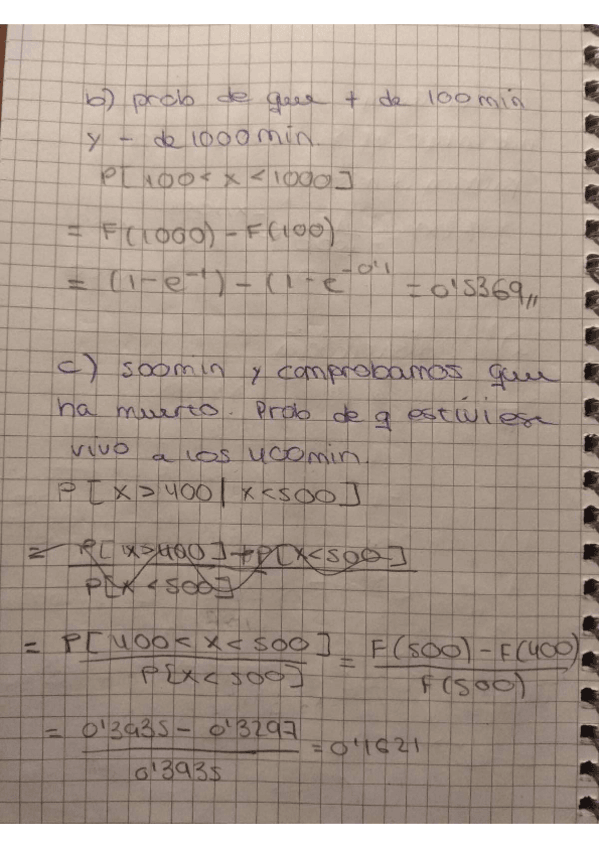 b) prob de que + de 100 min
y - de 1000 min.
P[100 < x < 1000]
= F(1000) - F(100)
= (1-e⁻¹) - (1-e^-0'1 = 0'5369,,
c) 500min y comprobamos que
ha muerto. Prob de q estiviese
vivo a los 400min.
P[x>400 | x<500]
= P[x>400] + P[x<500]
P[x<500]
= P[400 < x < 500] = F(500) - F(400)
P[x<500] F(500)
= 0'3935 - 0'3297 = 0'1621
0'3935